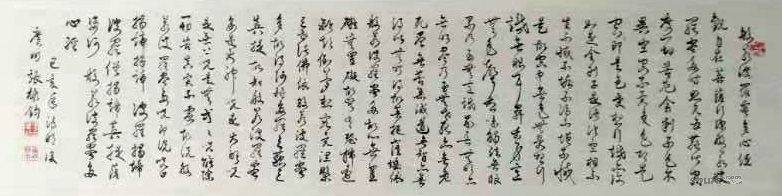 般若波羅蜜多心經
觀自在菩薩行深般若波
羅蜜多時照見五蘊皆空
度一切苦厄舍利子色不
異空空不異色色即是
空空即是色受想行識亦
如是舍利子是諸法空相不
生不滅不垢不淨不增不減
是故空中無色無受想行
識無眼耳鼻舌身意
無色聲香味觸法無眼
界乃至無意識界無無明亦
無無明盡乃至無老死亦無老
死盡無苦集滅道無智亦無
得以無所得故菩提薩埵依
般若波羅蜜多故心無罣
礙無罣礙故無有恐怖遠
離顛倒夢想究竟涅槃
三世諸佛依般若波羅蜜
多故得阿耨多羅三藐三
菩提故知般若波羅蜜
多是大神咒是大明咒
是無上咒是無等等咒能除
一切苦真實不虛故說般
若波羅蜜多咒即說咒曰
揭諦揭諦 波羅揭諦
波羅僧揭諦 菩提薩
婆訶 般若波羅蜜多
心經
己亥年
張